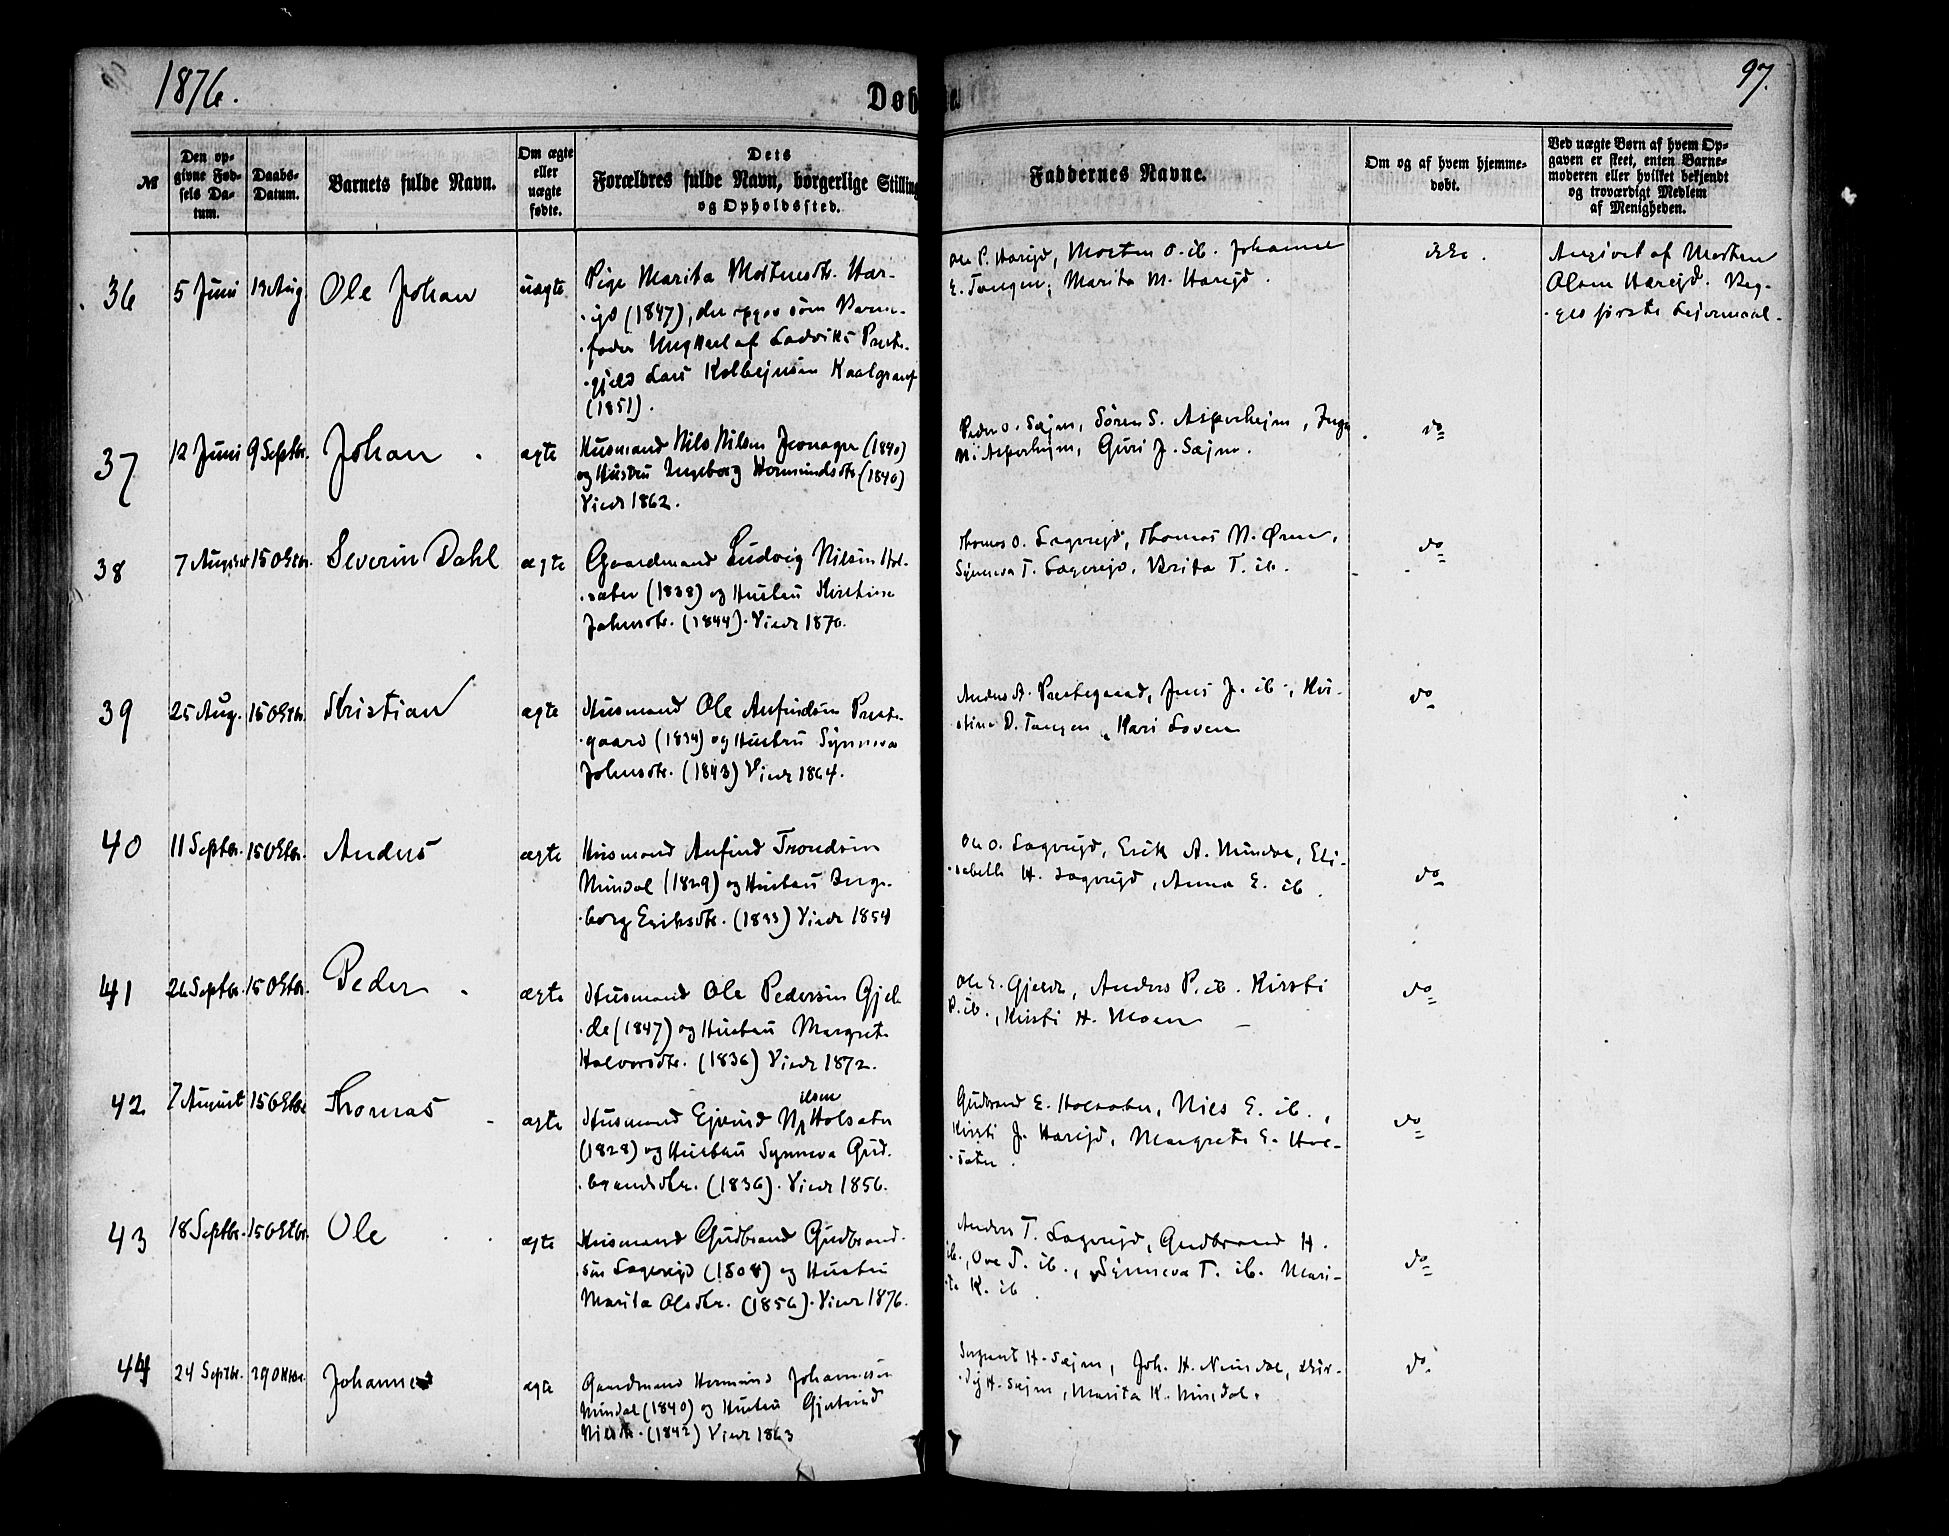 1876.
Døb
97.
№
Den op-
givne Fød-
sels Da-
tum.
Daabs-
Datum.
Barnets fulde Navn.
Om ægte
eller
uægte
fødte.
Dets
Forældres fulde Navn, borgerlige Stilling
og Opholdssted.
Faddernes Navne.
Om og af hvem hjemme-
døbt.
Ved uægte Børn af hvem Op-
gaven er skeet, enten Barne-
moderen eller hvilket bekjendt
og troværdigt Medlem
af Menigheden.
36
5 Juni
13 Aug
Ole Johan
uægte
Pige Marita Mortensdtr. Har-
-ejd (1847), der som Barne-
-fader Ungkarl af Ladviks Præste-
-gjeld Lars Kolbejnsen
(1851).
Ole P. Harejd, Morten O. ib. Johanne
E. Tangen, Marita M. Harejd.
ikke.
Angivet af Morten
Olsen Harejd. Beg-
-ges første Lejermaal.
37
12 Juni
9 Septbr.
Johan
ægte
Husmand Nils Nilsen (1840)
og Hustru Ingeborg Hermundsdtr (1840)
Viede 1862.
Peder O. Sæjm, Søren S. Asperhejm, Inga
N. Asperhejm, Guri J. Sæjm.
do
38
7 August
15 Oktbr.
Severin Dahl
ægte
Gaardmand Ludvig Nilsen Hol-
-sæter (1838) og Hustru Kirstine
Johnsdtr. (1844). Viede 1870.
Thomas O. Lagrejd, Thomas N. Øren,
Synneva T. Lagrejd, Brita T. ib.
do
39
25 Aug.
15 Oktbr.
Kristian
ægte
Husmand Ole Anfindsen Præste-
-gaard (1834) og Hustru Synneva
Johnsdtr. (1843) Viede 1864.
Anders A. Præstegaard, Jens J. ib., Kri-
-stine D. Tangen, Kari Loven
do
40
11 Septbr.
15 Oktbr.
Anders
ægte
Husmand Anfind Trondsen
Mundal (1829) og Hustru Inge-
-borg Eriksdtr. (1833) Viede 1854
Ole O. Lagrejd, Erik A. Mundal, Eli-
-sabeth H. Lagrejd, Anna E. ib.
do
41
26 Septbr.
15 Oktbr.
Peder
ægte
Husmand Ole Pedersen Gjel-
-de (1847) og Hustru Margrete
Halvorsdtr. (1836) Viede 1872.
Ole E. Gjelde, Anders P. ib. Kirsti
P. ib., Kirsti H. Moen
do
42
7 August
15 Oktbr
Thomas
ægte
Husmand Ejvind Nilsen Holsæter
(1828) og Hustru Synneva Gud-
-brandsdtr. (1836). Viede 1856.
Gudbrand E. Holsæter, Niels E. ib.,
Kirsti J. Harejd, Margrete E. Hol-
-sæter.
do
43
18 Septbr.
15 Oktbr.
Ole
ægte
Husmand Gudbrand Gudbrand-
-sen Lagrejd (1808) og Hustru
Marita Olsdtr. (1856). Viede 1876.
Anders T. Lagrejd, Gudbrand H.
ib., Ove T. ib., Synneva T. ib. Mari-
-ta K. ib.
do
44
24 Septbr.
29 Oktbr.
Johannes
ægte
Gaardmand Hermund Johannesen
Mundal (1840) og Hustru Gjertrud
Nilsdtr. (1842) Viede 1863
Sergeant H. Sæjm, Joh. H. Mundal,
H. Sæjm, Marita K. Mundal.
do